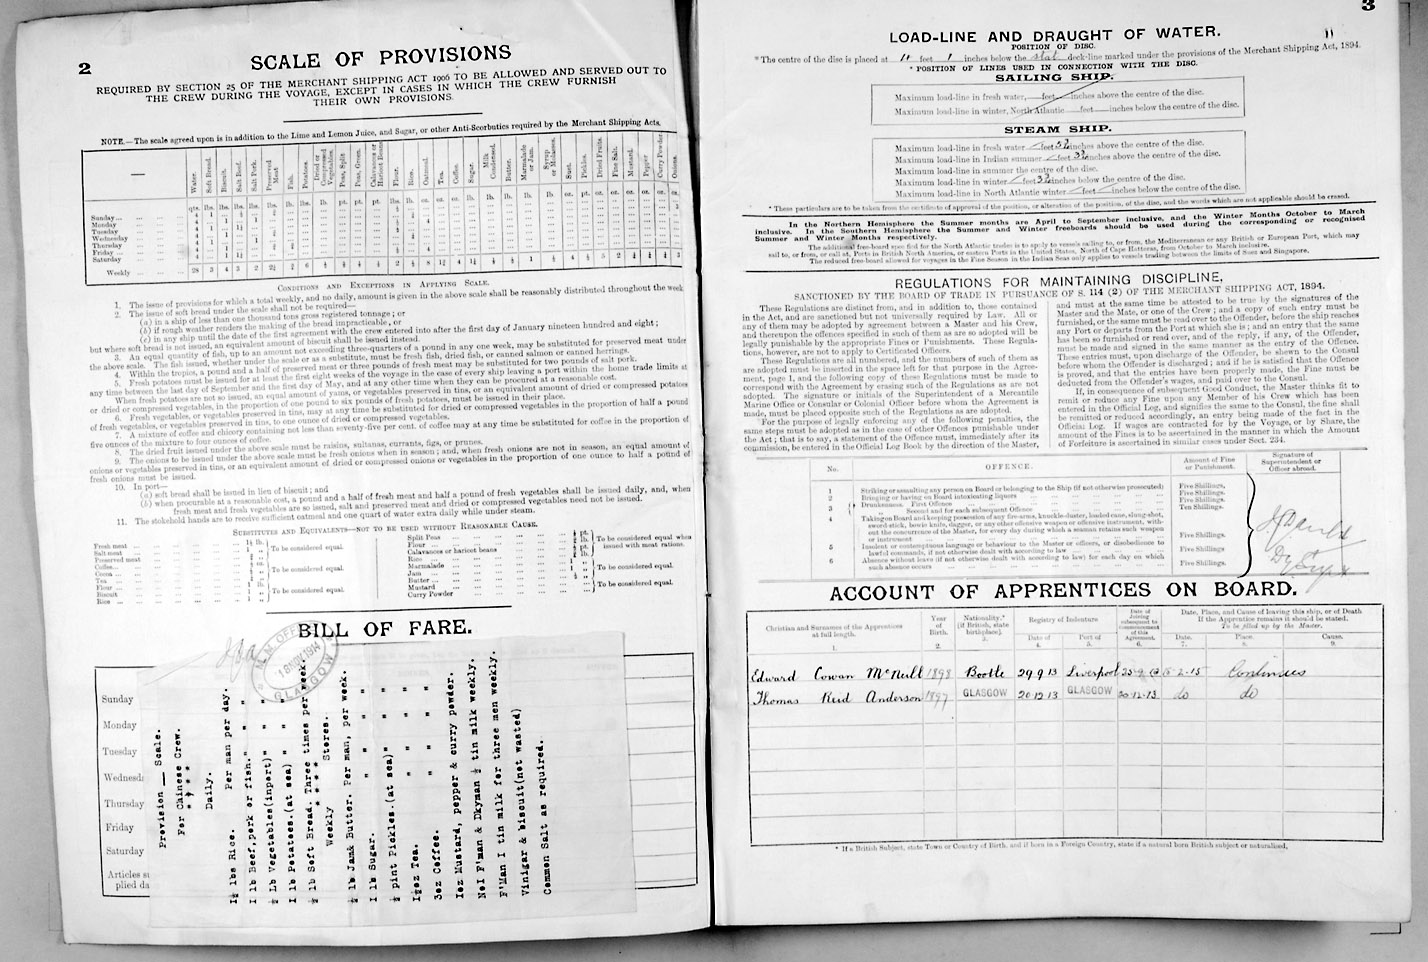 2
SCALE OF PROVISIONS
REQUIRED BY SECTION 25 OF THE MERCHANT SHIPPING ACT 1906 TO BE ALLOWED AND SERVED OUT TO
THE CREW DURING THE VOYAGE, EXCEPT IN CASES IN WHICH THE CREW FURNISH
THEIR OWN PROVISIONS.
NOTE.—The scale agreed upon is in addition to the Lime and Lemon Juice, and Sugar, or other Anti-Scorbutics required by the Merchant Shipping Acts.
Water. Soft Bread. Biscuit. Salt Beef. Salt Pork. Preserved Meat. Fish. Potatoes. Dried or Compressed Vegetables. Peas, Split Peas, Green. Calavances or Haricot Beans. Flour. Rice. Oatmeal. Tea. Coffee. Sugar. Milk Condensed. Butter. Marmalade or Jam. Syrup or Molasses. Suet. Pickles. Dried Fruits. Fine Salt. Mustard. Pepper Curry Powder. Onions.
Sunday
Monday
Tuesday
Wednesday
Thursday
Friday
Saturday
Weekly
CONDITIONS AND EXCEPTIONS IN APPLYING SCALE.
1. The issue of provisions for which a total weekly, and no daily, amount is given in the above scale shall be reasonably distributed throughout the week
2. The issue of soft bread under the scale shall not be required—
(a) in a ship of less than one thousand tons gross registered tonnage; or
(b) if rough weather renders the making of the bread impracticable, or
(c) in any ship until the date of the first agreement with the crew entered into after the first day of January nineteen hundred and eight;
but where soft bread is not issued, an equivalent amount of biscuit shall be issued instead.
3. An equal quantity of fish, up to an amount not exceeding three-quarters of a pound in any one week, may be substituted for preserved meat under
the above scale. The fish issued, whether under the scale or as a substitute, must be fresh fish, dried fish, or canned salmon or canned herrings.
4. Within the tropics, a pound and a half of preserved meat or three pounds of fresh meat may be substituted for two pounds of salt pork.
5. Fresh potatoes must be issued for at least the first eight weeks of the voyage in the case of every ship leaving a port within the home trade limits at
any time between the last day of September and the first day of May, and at any other time when they can be procured at a reasonable cost.
When fresh potatoes are not so issued, an equal amount of yams, or vegetables preserved in tins, or an equivalent amount of dried or compressed potatoes
or dried or compressed vegetables, in the proportion of one pound to six pounds of fresh potatoes, must be issued in their place.
6. Fresh vegetables, or vegetables preserved in tins, may at any time be substituted for dried or compressed vegetables in the proportion of half a pound
of fresh vegetables, or vegetables preserved in tins, to one ounce of dried or compressed vegetables.
7. A mixture of coffee and chicory containing not less than seventy-five per cent. of coffee may at any time be substituted for coffee in the proportion of
five ounces of the mixture to four ounces of coffee.
8. The dried fruit issued under the above scale must be raisins, sultanas, currants, figs, or prunes.
9. The onions to be issued under the above scale must be fresh onions when in season; and, when fresh onions are not in season, an equal amount of
onions or vegetables preserved in tins, or an equivalent amount of dried or compressed onions or vegetables in the proportion of one ounce to half a pound of
fresh onions must be issued.
10. In port—
(a) soft bread shall be issued in lieu of biscuit; and
(b) when procurable at a reasonable cost, a pound and a half of fresh meat and half a pound of fresh vegetables shall be issued daily, and, when
fresh meat and fresh vegetables are so issued, salt and preserved meat and dried or compressed vegetables need not be issued.
11. The stokehold hands are to receive sufficient oatmeal and one quart of water extra daily while under steam.
SUBSTITUTES AND EQUIVALENTS—NOT TO BE USED WITHOUT REASONABLE CAUSE.
Fresh meat
Salt meat
Preserved meat
To be considered equal.
Coffee
Cocoa
Tea
To be considered equal.
Flour
Biscuit
Rice
To be considered equal.
Split Peas
Flour
Calavances or haricot beans
Rice
To be considered equal when issued with meat rations.
Marmalade
Jam
Butter
To be considered equal.
Mustard
Curry Powder
To be considered equal.
BILL OF FARE.
18 NOV 1914
GLASGOW
Sunday
Monday
Tuesday
Wednesd
Thursday
Friday
Saturday
Articles s
plied da
Provision — Scale.
For Chinese Crew.
* * * *
Daily.
1½ lbs Rice. Per man per day.
1 lb Beef, pork or fish. " " "
½ Lb Vegetables(inport) " " "
1 lb Potatoes.(at sea) " " "
½ lb Soft Bread. Three times per week.
* * * *
Weekly Stores.
½ lb Jam& Butter. Per man, per week.
1 lb Sugar. " " "
½ pint Pickles.(at sea) " " "
1½oz Tea. " " "
3oz Coffee. " " "
1oz Mustard, pepper & curry powder.
No1 F'man & Dkyman ½ tin milk weekly.
F'Man 1 tin milk for three men weekly.
Vinigar & biscuit(not wasted)
Common Salt as required.
3
LOAD-LINE AND DRAUGHT OF WATER.
POSITION OF DISC.
* The centre of the disc is placed at 11 feet 1 inches below the steel deck-line marked under the provisions of the Merchant Shipping Act, 1894.
* POSITION OF LINES USED IN CONNECTION WITH THE DISC.
SAILING SHIP.
Maximum load-line in fresh water, feet inches above the centre of the disc.
Maximum load-line in winter, North Atlantic feet inches below the centre of the disc.
STEAM SHIP.
Maximum load-line in fresh water feet 5½ inches above the centre of the disc.
Maximum load-line in Indian summer feet 3½ inches above the centre of the disc.
Maximum load-line in summer the centre of the disc.
Maximum load-line in winter feet 3½ inches below the centre of the disc.
Maximum load-line in North Atlantic winter feet inches below the centre of the disc.
* These particulars are to be taken from the certificate of approval of the position, or alteration of the position, of the disc, and the words which are not applicable should be erased.
In the Northern Hemisphere the Summer months are April to September inclusive, and the Winter Months October to March
inclusive. In the Southern Hemisphere the Summer and Winter freeboards should be used during the corresponding or recognised
Summer and Winter Months respectively.
The additional free-board specified for the North Atlantic trades is to apply to vessels sailing to, or from, the Mediterranean or any British or European Port, which may
sail to, or from, or call at, Ports in British North America, or eastern Ports in the United States, North of Cape Hatteras, from October to March inclusive.
The reduced free-board allowed for voyages in the Fine Season in the Indian Seas only applies to vessels trading between the limits of Suez and Singapore.
REGULATIONS FOR MAINTAINING DISCIPLINE,
SANCTIONED BY THE BOARD OF TRADE IN PURSUANCE OF S. 114 (2) OF THE MERCHANT SHIPPING ACT, 1894.
These Regulations are distinct from, and in addition to, those contained
in the Act, and are sanctioned but not universally required by Law. All or
any of them may be adopted by agreement between a Master and his Crew,
and thereupon the offences specified in such of them as are so adopted will be
legally punishable by the appropriate Fines or Punishments. These Regula-
tions, however, are not to apply to Certificated Officers.
These Regulations are all numbered, and the numbers of such of them as
are adopted must be inserted in the space left for that purpose in the Agree-
ment, page 1, and the following copy of these Regulations must be made to
correspond with the Agreement by erasing such of the Regulations as are not
adopted. The signature or initials of the Superintendent of a Mercantile
Marine Office or Consular or Colonial Officer before whom the Agreement is
made, must be placed opposite such of the Regulations as are adopted.
For the purpose of legally enforcing any of the following penalties, the
same steps must be adopted as in the case of other Offences punishable under
the Act; that is to say, a statement of the Offence must, immediately after its
commission, be entered in the Official Log Book by the direction of the Master,
and must at the same time be attested to be true by the signatures of the
Master and the Mate, or one of the Crew; and a copy of such entry must be
furnished, or the same must be read over to the Offender, before the ship reaches
any Port or departs from the Port at which she is; and an entry that the same
has been so furnished or read over, and of the reply, if any, of the Offender,
must be made and signed in the same manner as the entry of the Offence.
These entries must, upon discharge of the Offender, be shewn to the Consul
before whom the Offender is discharged; and if he is satisfied that the Offence
is proved, and that the entries have been properly made, the Fine must be
deducted from the Offender's wages, and paid over to the Consul.
If, in consequence of subsequent Good Conduct, the Master thinks fit to
remit or reduce any Fine upon any Member of his Crew which has been
entered in the Official Log, and signifies the same to the Consul, the fine shall
be remitted or reduced accordingly, an entry being made of the fact in the
Official Log. If wages are contracted for by the Voyage, or by Share, the
amount of the Fines is to be ascertained in the manner in which the Amount
of Forfeiture is ascertained in similar cases under Sect. 234.
No. OFFENCE. Amount of Fine or Punishment. Signature of Superintendent or Officer abroad.
1 Striking or assaulting any person on Board or belonging to the Ship (if not otherwise prosecuted) Five Shillings.
2 Bringing or having on Board intoxicating liquors Five Shillings.
3 Drunkenness. First Offence Five Shillings.
Second and for each subsequent Offence Ten Shillings.
4 Taking on Board and keeping possession of any fire-arms, knuckle-duster, loaded cane, slung-shot,
sword-stick, bowie knife, dagger, or any other offensive weapon or offensive instrument, with-
out the concurrence of the Master, for every day during which a seaman retains such weapon
or instrument Five Shillings.
5 Insolent or contemptuous language or behaviour to the Master or officers, or disobedience to
lawful commands, if not otherwise dealt with according to law Five Shillings
6 Absence without leave (if not otherwise dealt with according to law) for each day on which
such absence occurs Five Shillings.
ACCOUNT OF APPRENTICES ON BOARD.
Christian and Surnames of the Apprentices at full length. Year of Birth. Nationality.* [If British, state birthplace]. Registry of Indenture Date of Port of Date of Joining subsequent to Commencement of this Agreement. Date, Place, and Cause of leaving this ship, or of Death If the Apprentice remains it should be stated. To be filled up by the Master. Date. Place. Cause.
1. 2. 3. 4. 5. 6. 7. 8. 9.
Edward Cowan McNeill 1898 Bootle 29.9.13 Liverpool Continues
Thomas Reid Anderson 1897 GLASGOW 20.12.13 GLASGOW 20.12.13 do do
* If a British Subject, state Town or Country of Birth, and if born in a Foreign Country, state if a natural born British subject or naturalised.